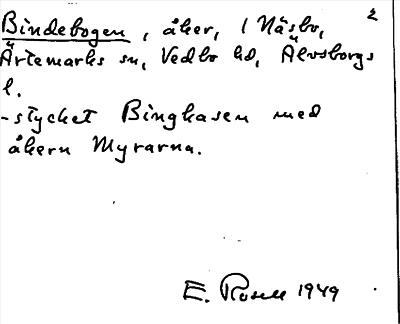 2
Bindebogen, åker, 1 Näsbo,
Ärtemarks sn, Vedbo hd, Älvsborgs
l.
-stycket Binghasen med
åkern Myrarna.
E. Rosell 1949